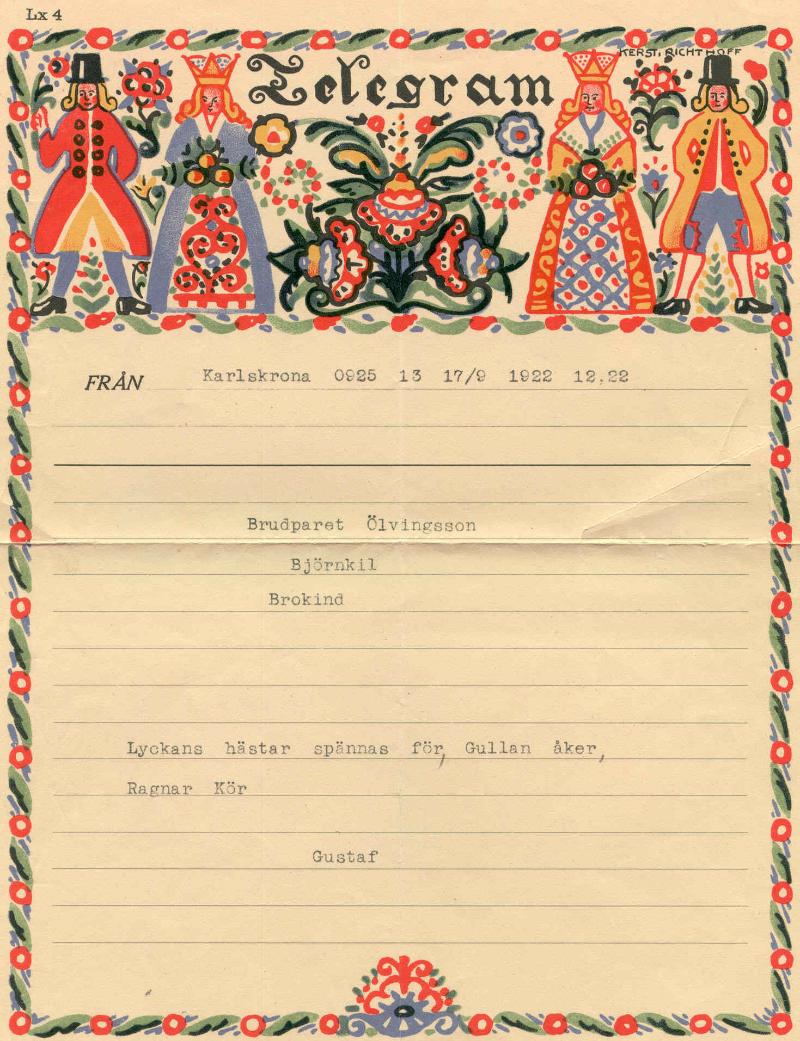 Lx 4
KERST. RICHTHOFF
Telegram
FRÅN Karlskrona 0925 13 17/9 1922 12,22
Brudparet Ölvingsson
Björnkil
Brokind
Lyckans hästar spännas för, Gullan åker,
Ragnar Kör
Gustaf